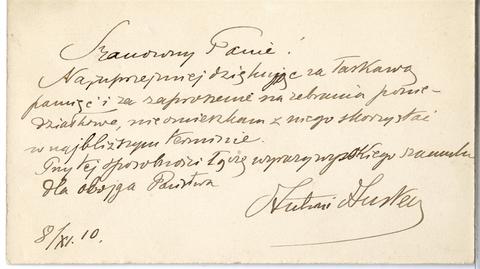 Szanowny Panie!
Najuprzejmiej dziękując za łaskawą
pamięć i za zaproszenie na zebrania ponie-
działkowe, nie omieszkam z niego skorzystać
w najbliższym terminie.
Przy tej sposobności łączę wyrazy wysokiego szacunku
dla obojga Państwa
Antoni
8/XI. 10.